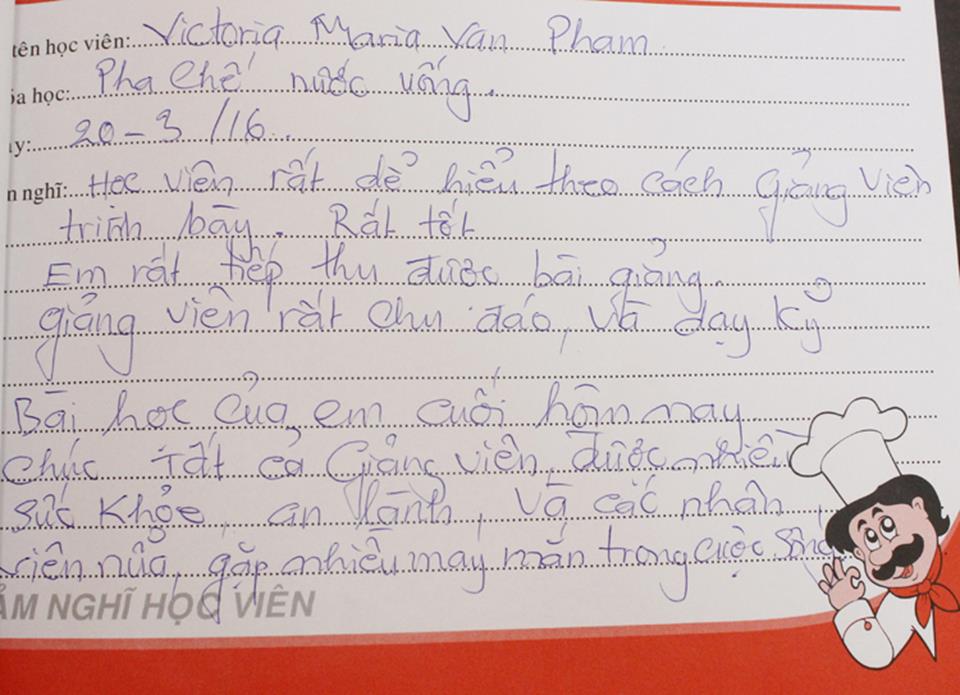 tên học viên: Victoria Maria Van Pham
óa học: Pha Chế nước uống.
ày: 20-3/16.
n nghĩ: Học viên rất dể hiểu theo cách giảng viên
trình bày. Rất tốt
Em rất tiếp thu được bài giảng.
giảng viên rất chu đáo, và dạy kỷ
Bài học của em cuối hôm nay
chúc tất cả Giảng viên, được nhiều
sức khỏe, an lành, và các nhân
viên nữa, gặp nhiều may mắn trong cuộc sống
ẢM NGHĨ HỌC VIÊN